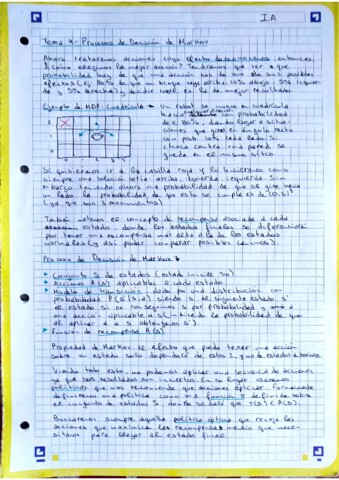 IA
Tema 4 - Procesos de Decisión de Markov
Ahora trataremos acciones cuyo efecto desconocemos, entonces,
¿Cómo elegimos la mejor acción? Tendremos que ver que
probabilidad hay de que una acción nos de uno de sus posibles
efectos (Ej: 80% de que un bloque vaya arriba, 10% abajo, 5% izquier
da y 5% derecha) y decidir cuál es la de mejor resultado.
Ejemplo de MDP: Cuadrícula → Un robot se mueve en cuadrícula
hacia con probabilidad
del 80%, dando lugar a situa-
ciones que gire en ángulo recto
con prob. 10% cada lado. Si
choca contra una pared se
queda en el mismo sitio.
Si quisieramos ir a la casilla roja y lo hicieramos como
siempre una solución sería arriba, izquierda, izquierda. Sin
embargo, teniendo ahora una probabilidad de que se gire hacia
un lado la probabilidad de que esto se cumpla es de (0,8)³
(ya que son 3 movimientos)
También tenemos el concepto de recompensa asociada a cada
estado, donde los estados finales se diferencian
por tener una recompensa más alta a la de los estados
normales (y así poder comparar posibles caminos).
Proceso de Decisión de Markov
Conjunto S de estados (estado inicial S0).
Acciones A(s) aplicables a cada estado.
Modelo de transición: dado por una distribución con
probabilidad P(s'|s,a) siendo s' el siguiente estado, s
el estado y a
una acción aplicable a s (→ tiendo la probabilidad de que
al aplicar a a s obtengamos s').
Función de recompensa R(s)
Propiedad de Markov: el efecto que puede tener una acción
sobre un estado solo depende de estos 2, y no de estados anteriores.
Viendo todo esto, no podemos aplicar una secuencia de acciones
ya que sus resultados son inciertos. En su lugar usaremos
políticas que nos recomiende que acciones aplicar. Formalmente
definiremos una política como una función π definida sobre
el conjunto de estados S, donde se da que π(s) ∈ A(s).
Buscaremos siempre aquella política óptima que recoja las
acciones que maximice la recompensa media que nece-
sitamos para llegar al estado final.